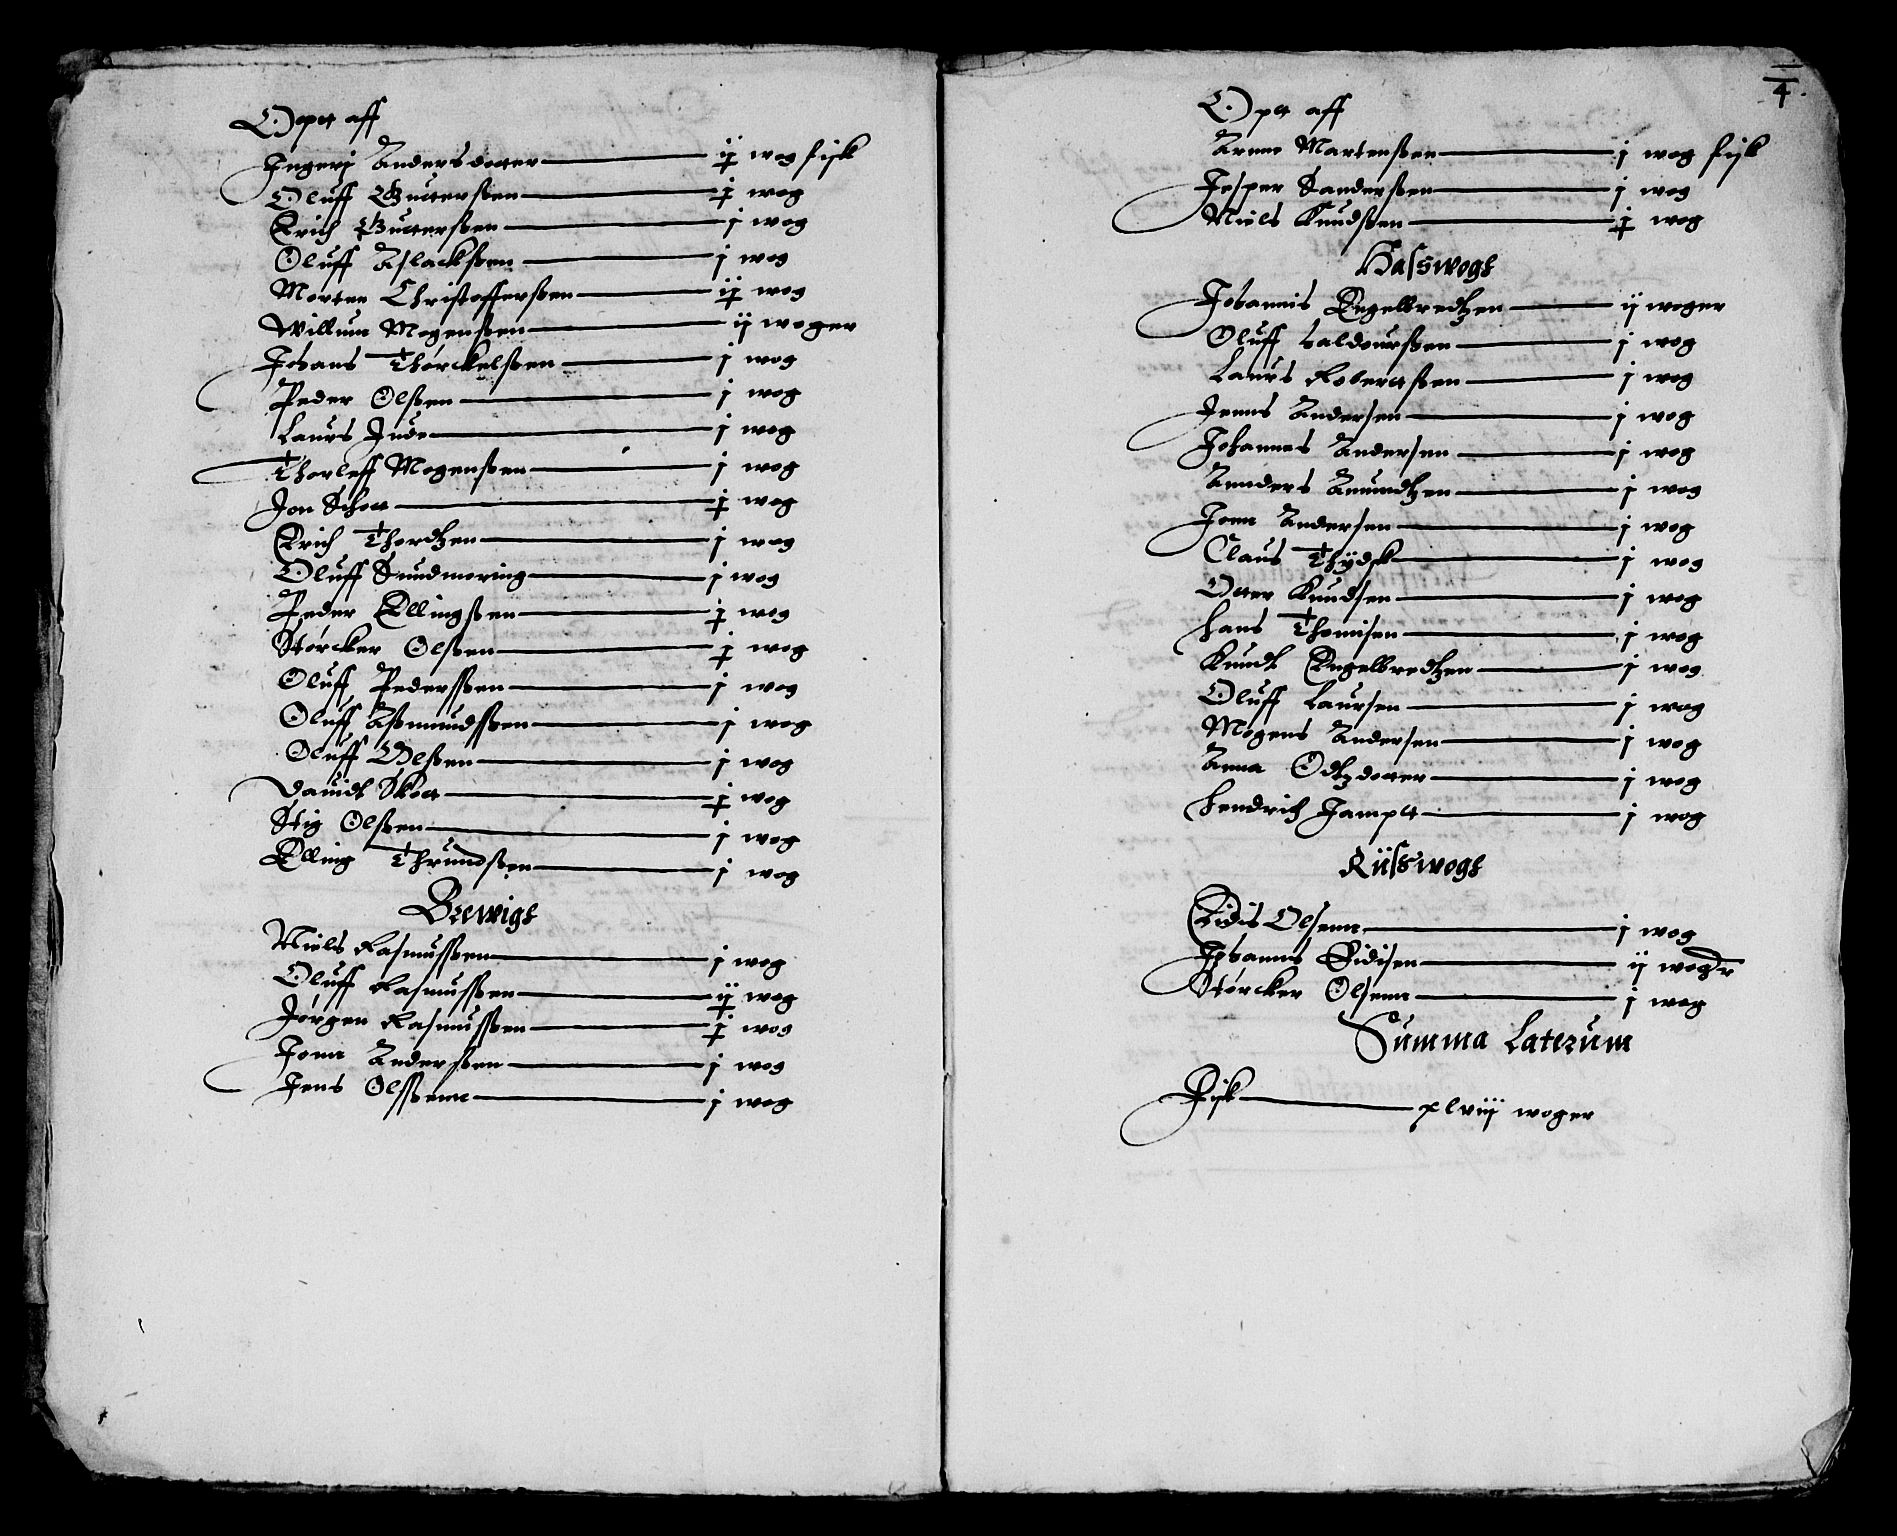 Opet aff
Ingerj Andersdotter ij wog fisk
Oluff Guttersßen j wog
Erich Guttersßen j wog
Oluff Aslacksßen j wog
Morten Christoffersßen ij wog
Willum Mogensßen ij woger
Johans Thørckelsßen j wog
Peder Olsßen j wog
Laurs Jude j wog
Thorleff Mogensßen j wog
Jon Schott j wog
Erich Thordtzen j wog
Oluff Sundmøring j wog
Peder Ellingsßen j wog
Størcker Olsßen j wog
Oluff Pedersßen j wog
Oluff Aßmundsßen j wog
Oluff Olsßen j wog
Dauidt Skott j wog
Stig Olsßen j wog
Elling Thrundsßen j wog
Brewigt
Niels Rasmusßen j wog
Oluff Rasmusßen ij wog
Jørgen Rasmusßen j wog
Jonn Andersßen j wog
Jens Olsßenn j wog
4
Opet aff
Arnne Martensßen j wog fisk
Jesper Sandersßen j wog
Niels Knudsßen j wog
Halswogt
Johannis Engelbredtzen ij woger
Oluff Haldoursßen j wog
Laurs Robertsßen j wog
Jenns Andersen j wog
Johannes Andersen j wog
Annders Amundtzen j wog
Jonn Andersen j wog
Claus Thydsk j wog
Otter Knudsen j wog
Hans Thomisen j wog
Knudt Engelbredtzen j wog
Oluff Laursen j wog
Mogens Andersen j wog
Anna Odtzdotter j wog
Hendrich Jampt j wog
Riiswogt
Eidis Olsenn j wog
Johannis Eidisen ij woger
Størcker Olsenn j wog
Summa Laterum
Fisk xlviij woger